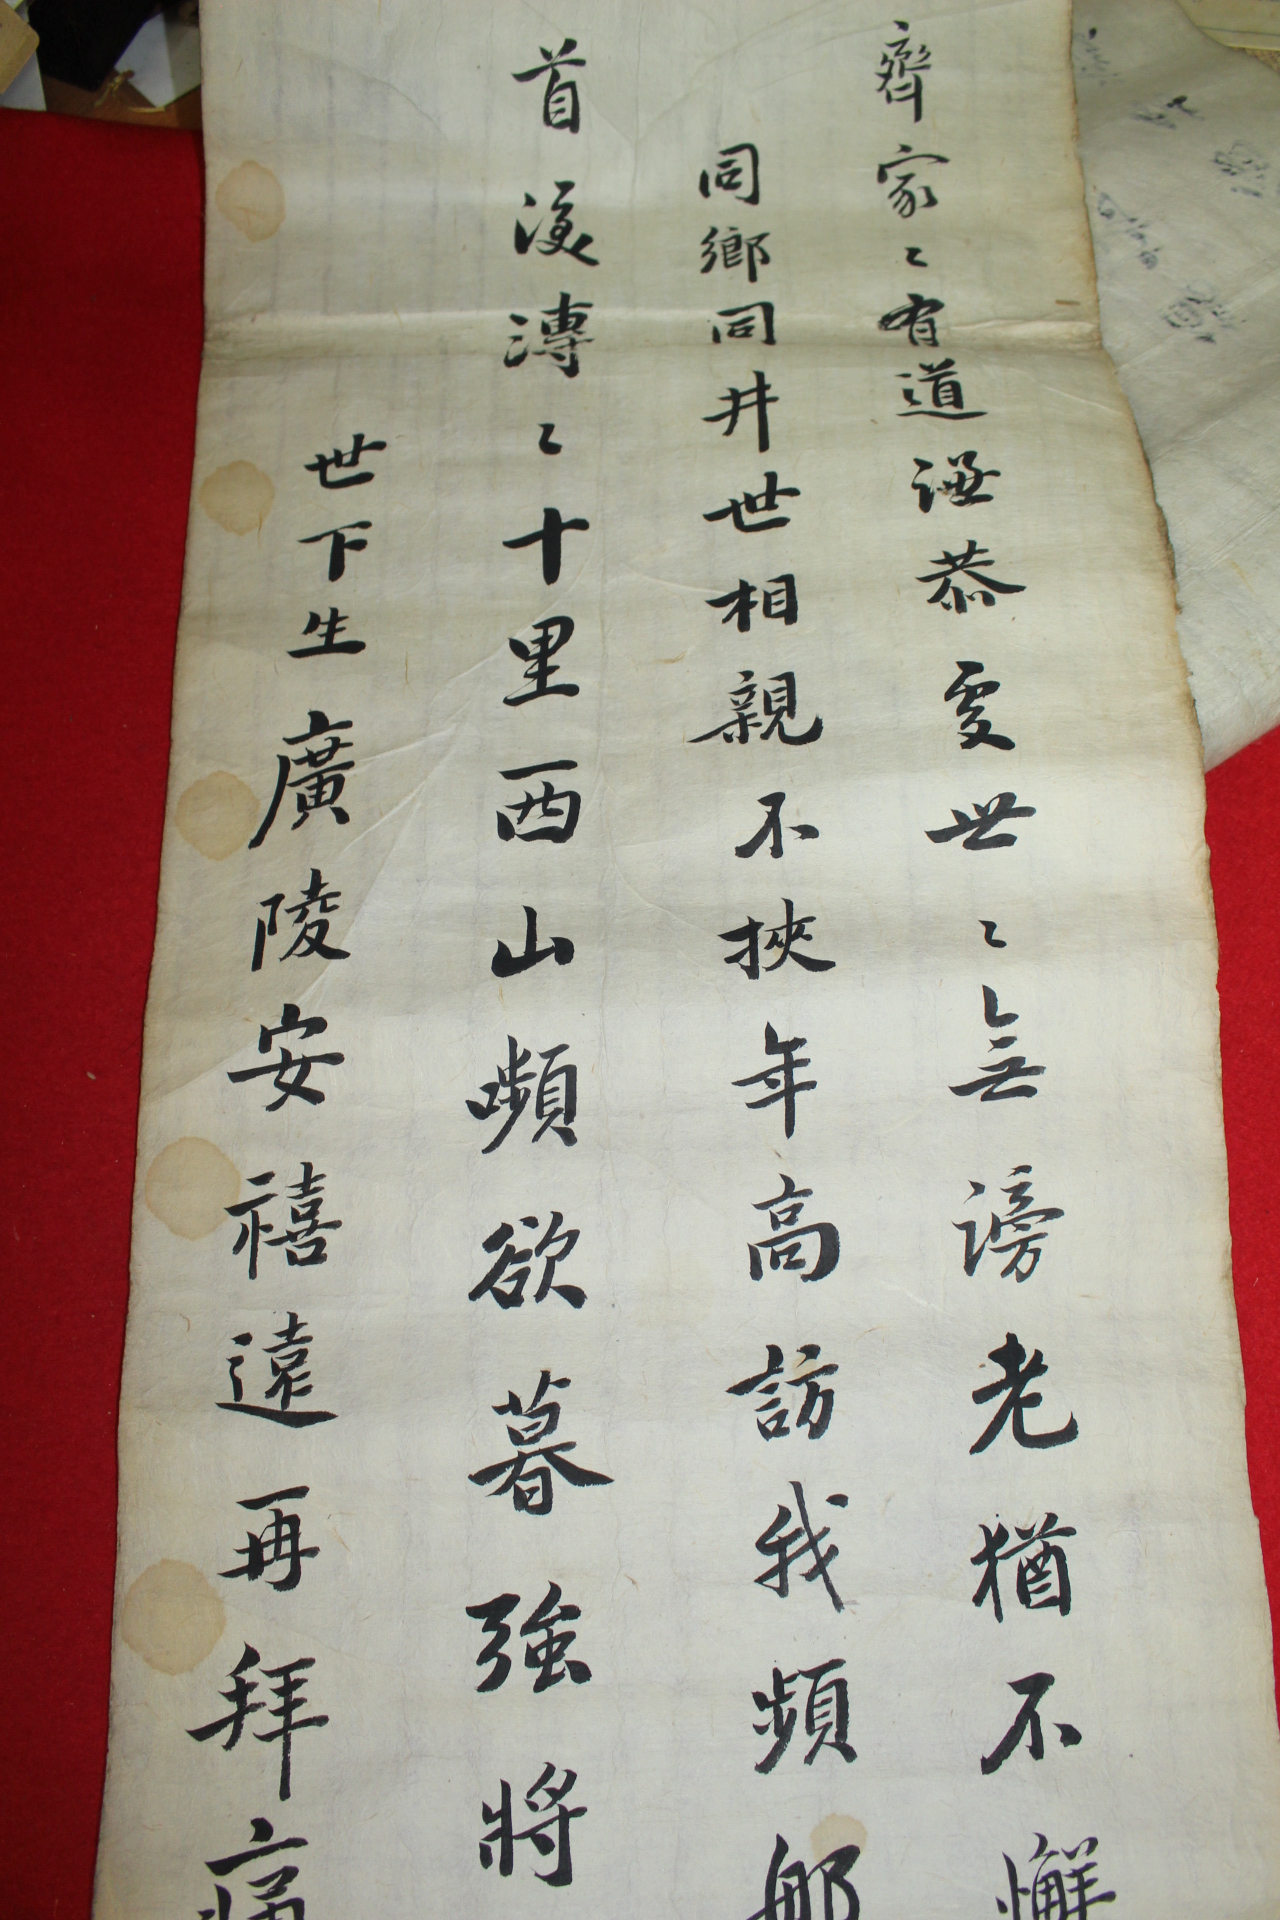 齊家〻有道謙恭處世〻無謗老猶不懈
同鄉同井世相親不挾年高訪我頻那
首浚漙〻十里西山嚬欲暮強將
世下生廣陵安禧遠再拜痛